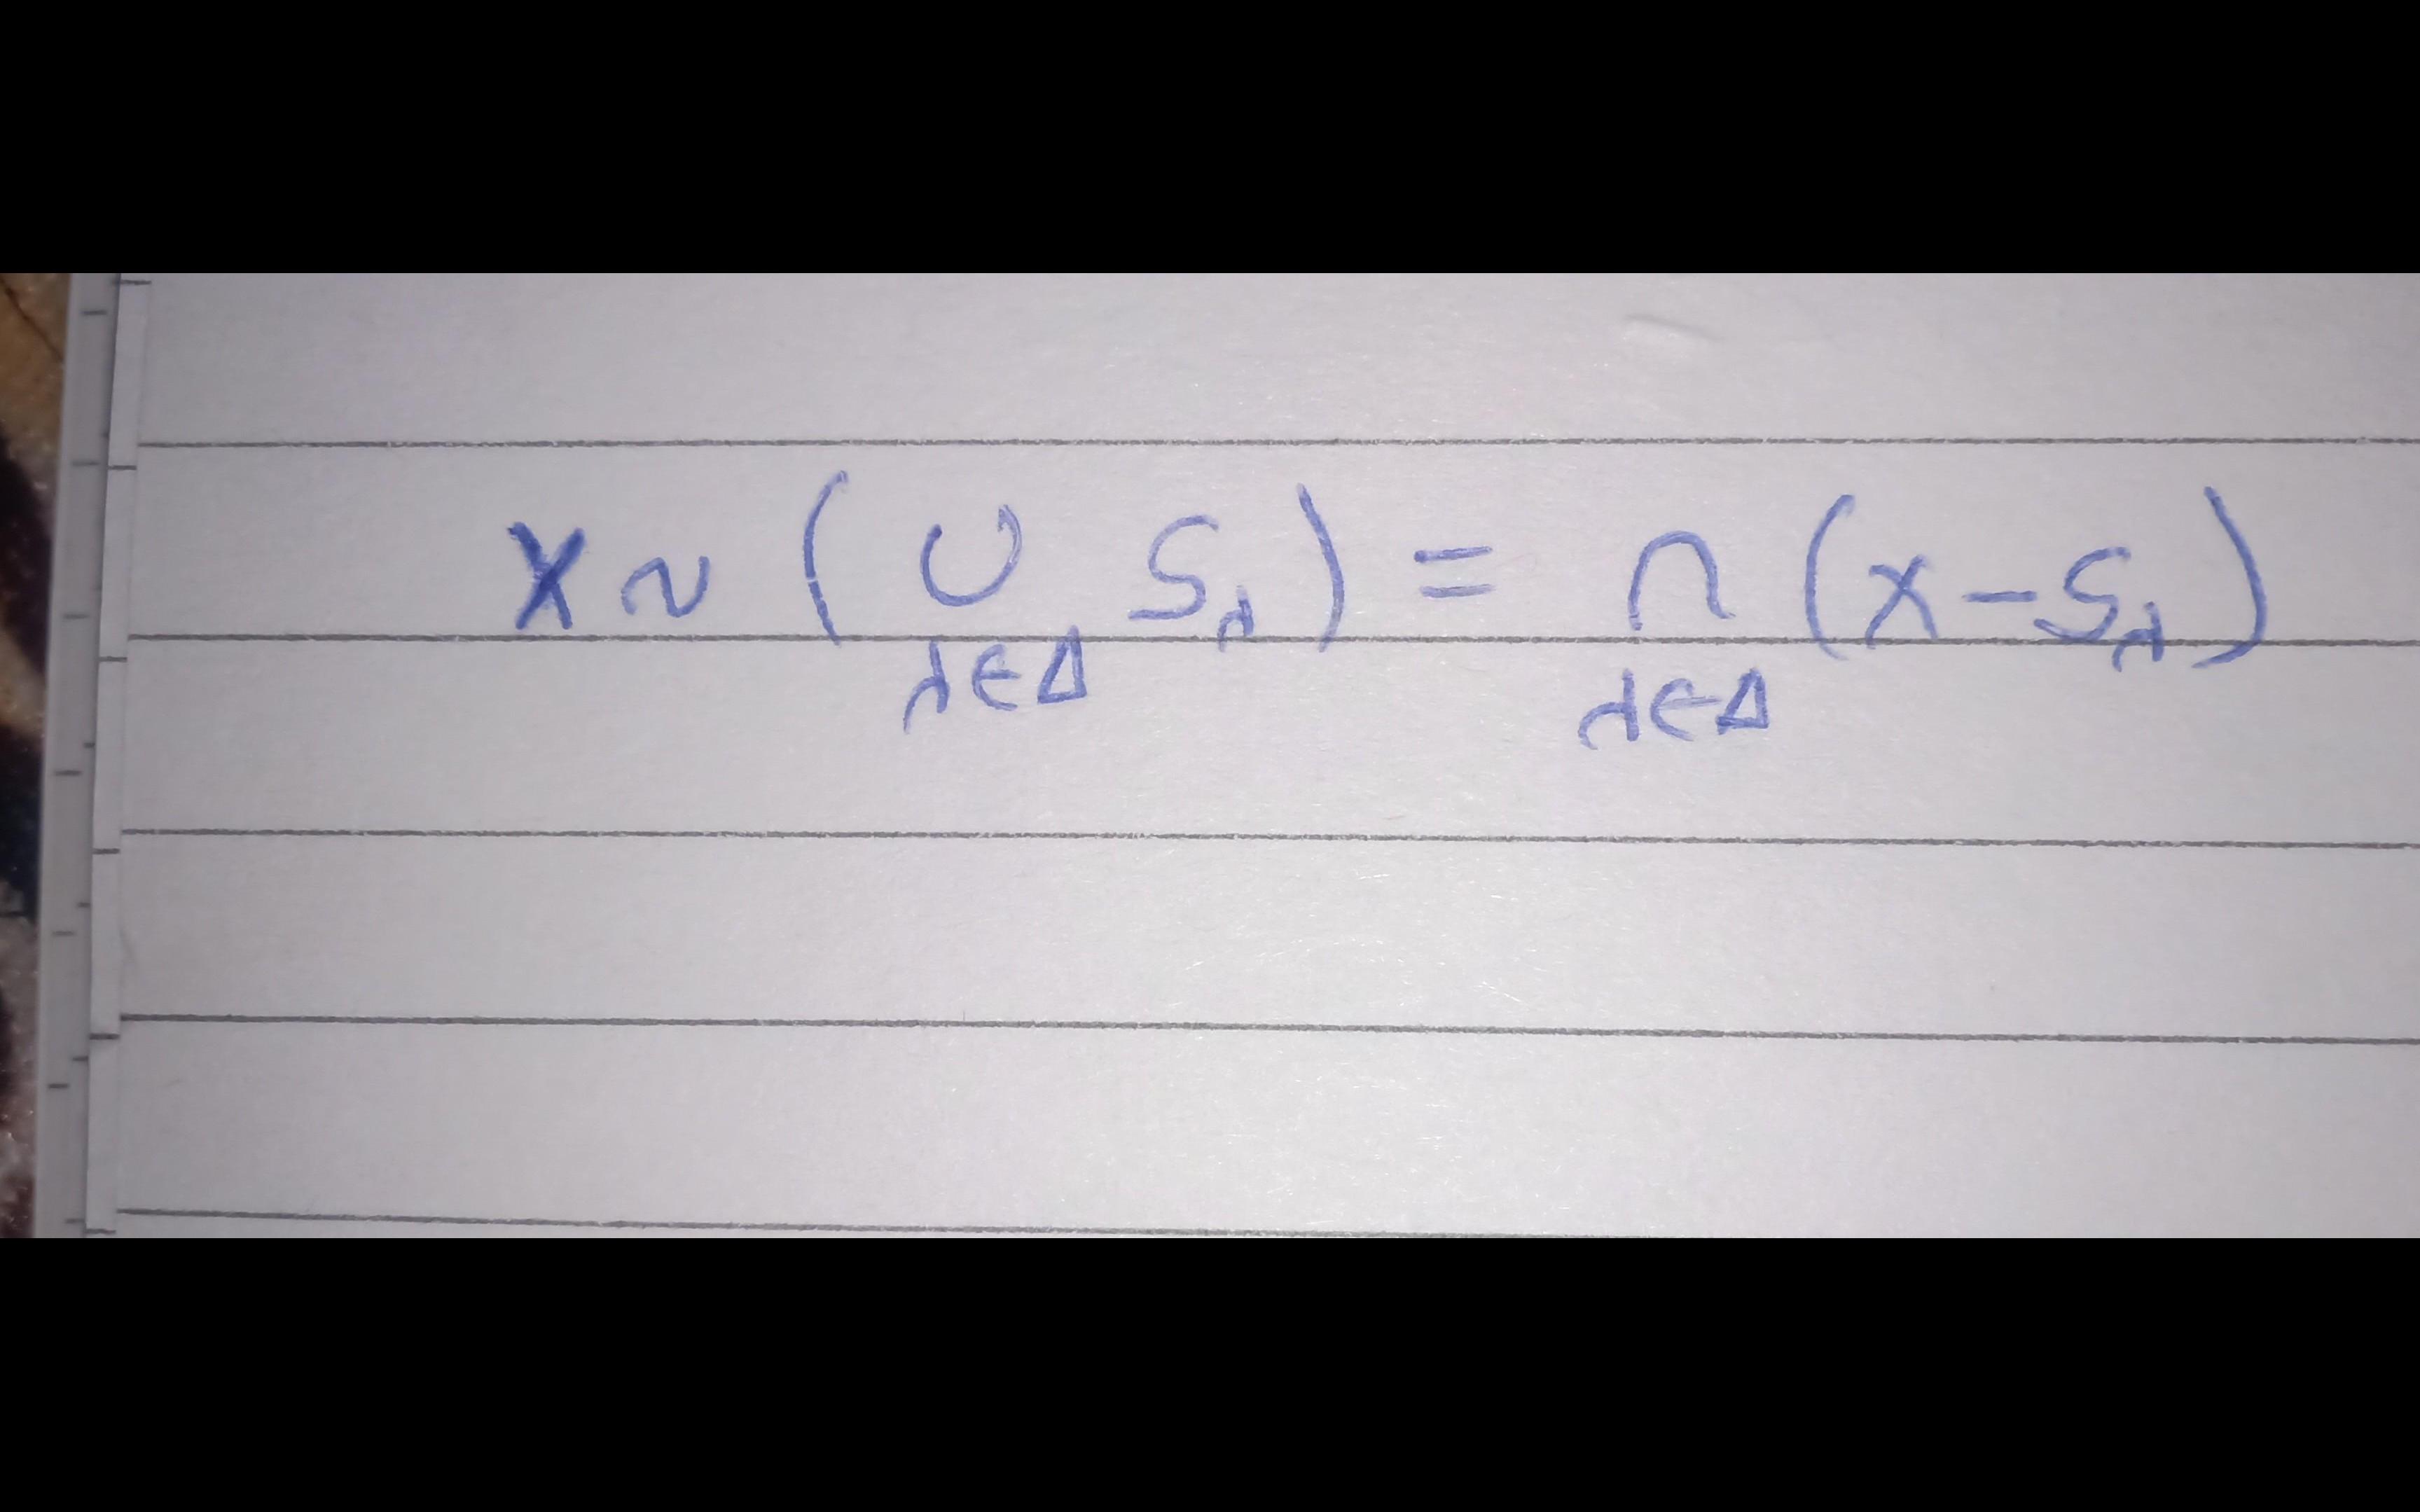 X ~ ( ∪_{λ∈Δ} S_λ ) = ∩_{λ∈Δ} (X - S_λ)